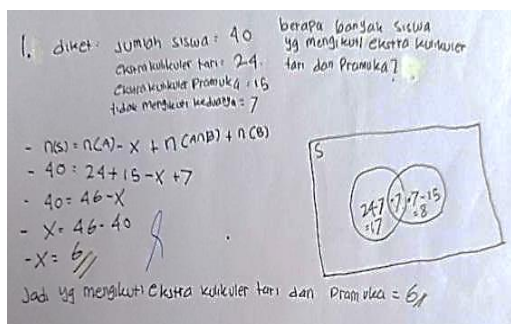 1. diket: Jumlah siswa = 40
ekstrakulikuler tari = 24
ekstrakulikuler Pramuka = 15
tidak mengikuti keduanya = 7
berapa banyak siswa
yg mengikuti ekstra kulikuler
tari dan Pramuka?
- n(S) = n(A) - x + n(A∩B) + n(B)
- 40 = 24 + 15 - x + 7
- 40 = 46 - x
- x = 46 - 40
- x = 6//
S
24-7
=17
•7
•7-15
=8
Jadi yg mengikuti ekstra kulikuler tari dan Pramuka = 6//